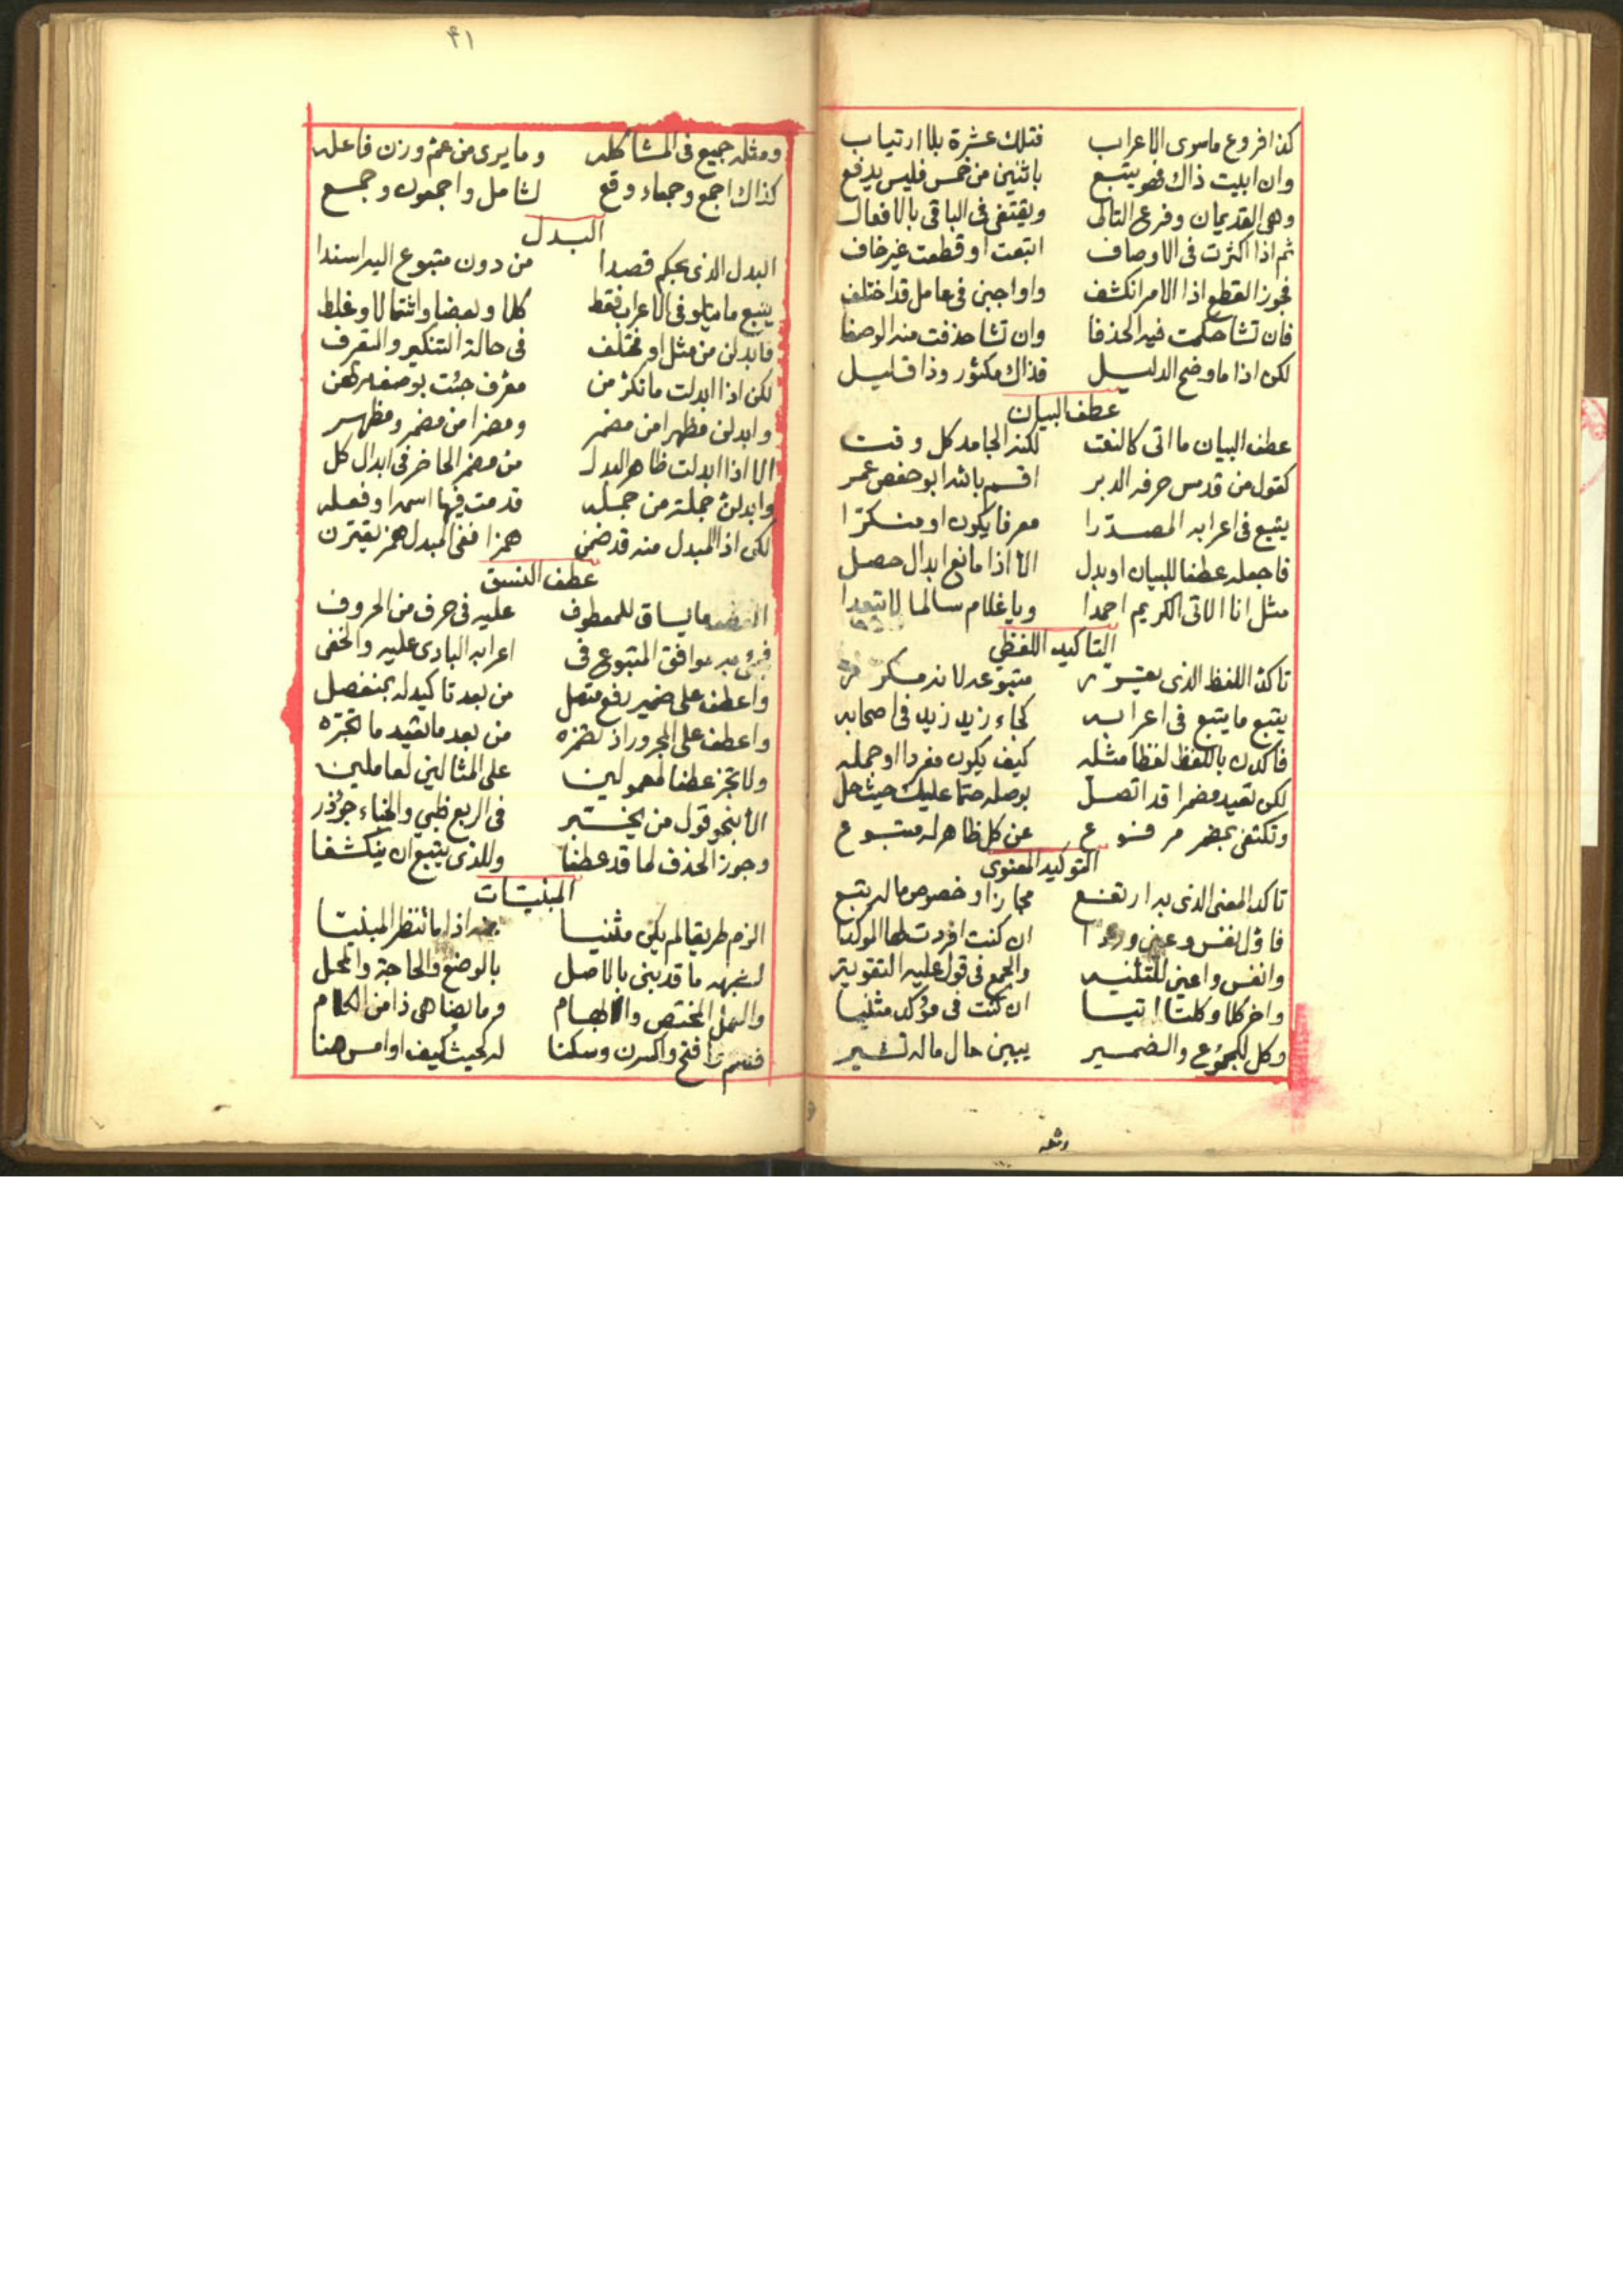 كذا فروع ماسوى الاعراب فتلك عشرة بلا ارتياب
وان ابيت ذاك فهو يتبع باثنين من خمس فليس يدفع
وهى القديمان وفرع التالى ويقتفى فى الباقى بالافعال
ثم اذا اكثرت فى الاوصاف اتبعت او قطعت غير خاف
فجوز القطع اذا الامر انكشف واواجبن فى عامل قد اختلف
فان تشا حكمت فيه الحذفا وان تشا حذفت منه الوصفا
لكن اذا ما وضح الدليل فذاك مكثور وذا قليل
عطف البيان
عطف البيان ما اتى كالنعت لكنه الجامد كل وقت
كقول من قدمس حرفه الدبر اقسم بالله ابو حفص عمر
يتبع فى اعرابه المصدرا معرفا يكون او منكرا
فاجعله عطفا للبيان او بدل الا اذا مانع ابدال حصل
مثل انا الاتى الكريم احمدا ويا غلام سالما لا تبعدا
التاكيد اللفظي
تاكد اللفظ الذى يقرر متبوعه لانه مكرر
يتبع ما يتبع فى اعرابه كجاء زيد زيد فى اصحابه
فاكدن باللفظ لفظا مثله كيف يكون مفردا او جمله
لكن تعيد مضمرا قد اتصل بوصله حتما عليك حيث حل
وتكتفى بمضمر مرفوع عن كل ظاهر له متبوع
التوكيد المعنوى
تاكد المعنى الذى به ارتفع مجازا وخصوص ما له يتبع
فاول نفس وعين وردا ان كنت افردت لها الموكدا
وانفس واعين للتثنيه والجمع فى قول عليه التقويه
واخر كلا وكلتا اتيا ان كنت فى مؤكد مثنيا
وكل للمجموع والضمير يبين حال ما له تشير
ومثله
٤١
ومثله جميع فى المشاكله وما يرى من عم وزن فاعله
كذاك اجمع وجمعاء وقع لشامل واجمعون وجمع
البدل
البدل الذى بحكم قصدا من دون متبوع اليه اسندا
يتبع ما يتلو فى الاعراب فقط كلا وبعضا واشتمالا وغلط
فابدلن من مثل او مختلف فى حالة التنكير والتعرف
لكن اذا ابدلت مانكر من معرف جئت بوصف
وابدلن مظهرا من مضمر ومضمرا من مضمر ومظهر
الا اذا ابدلت ظاهر البدل من مضمر الحاضر فى ابدال كل
وابدلن جملة من جمله قدمت فيها اسمه او فعله
لكن اذا المبدل منه قد ضمن همزا ففى المبدل همز يقترن
عطف النسق
ما يساق للمعطوف عليه فى حرف من الحروف
به موافق المتبوع فى اعرابه البادى عليه والخفى
واعطف على ضمير رفع متصل من بعد تاكيد له بمنفصل
واعطف على المجرور اذ تضمره من بعد ما تعيد ما تجره
ولا تجز عطفا لمعمولين على المثالين لعاملين
الا بنحو قول من يختبر فى الربع ظبي والخباء جؤذر
وجوز الحذف لما قد عطفا وللذى يتبع ان ينكشفا
المبنيات
الزم طريقا لم يكن مثنيا اذا ما تنظر المبنيا
لشبهه ما قد بنى بالاصل بالوضع والحاجة والمحل
والعمل المختص والابهام وما يضاهى ذا من الكلام
وافتح واكسرن وسكنا له كحيث كيف او امس هنا